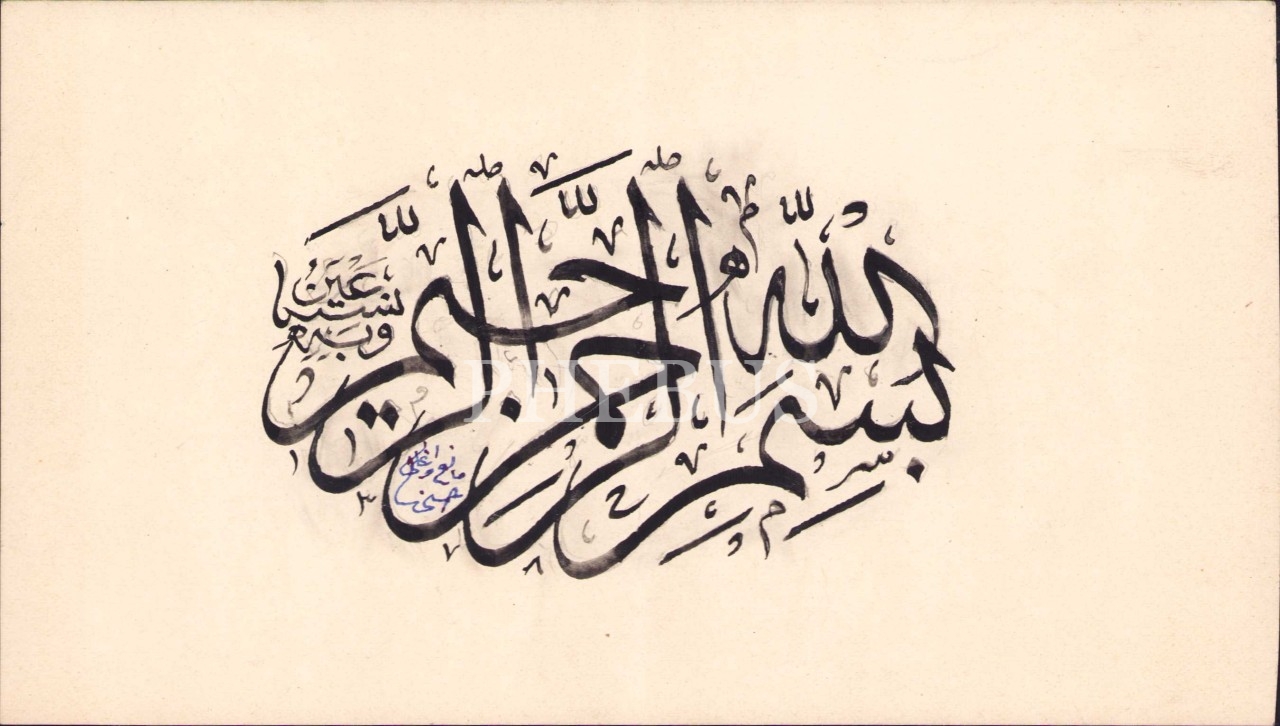 بِسْمِ اللّٰهِ الرَّحْمٰنِ الرَّحِيمِ
وَبِهِ نَسْتَعِينُ
PHEBUS